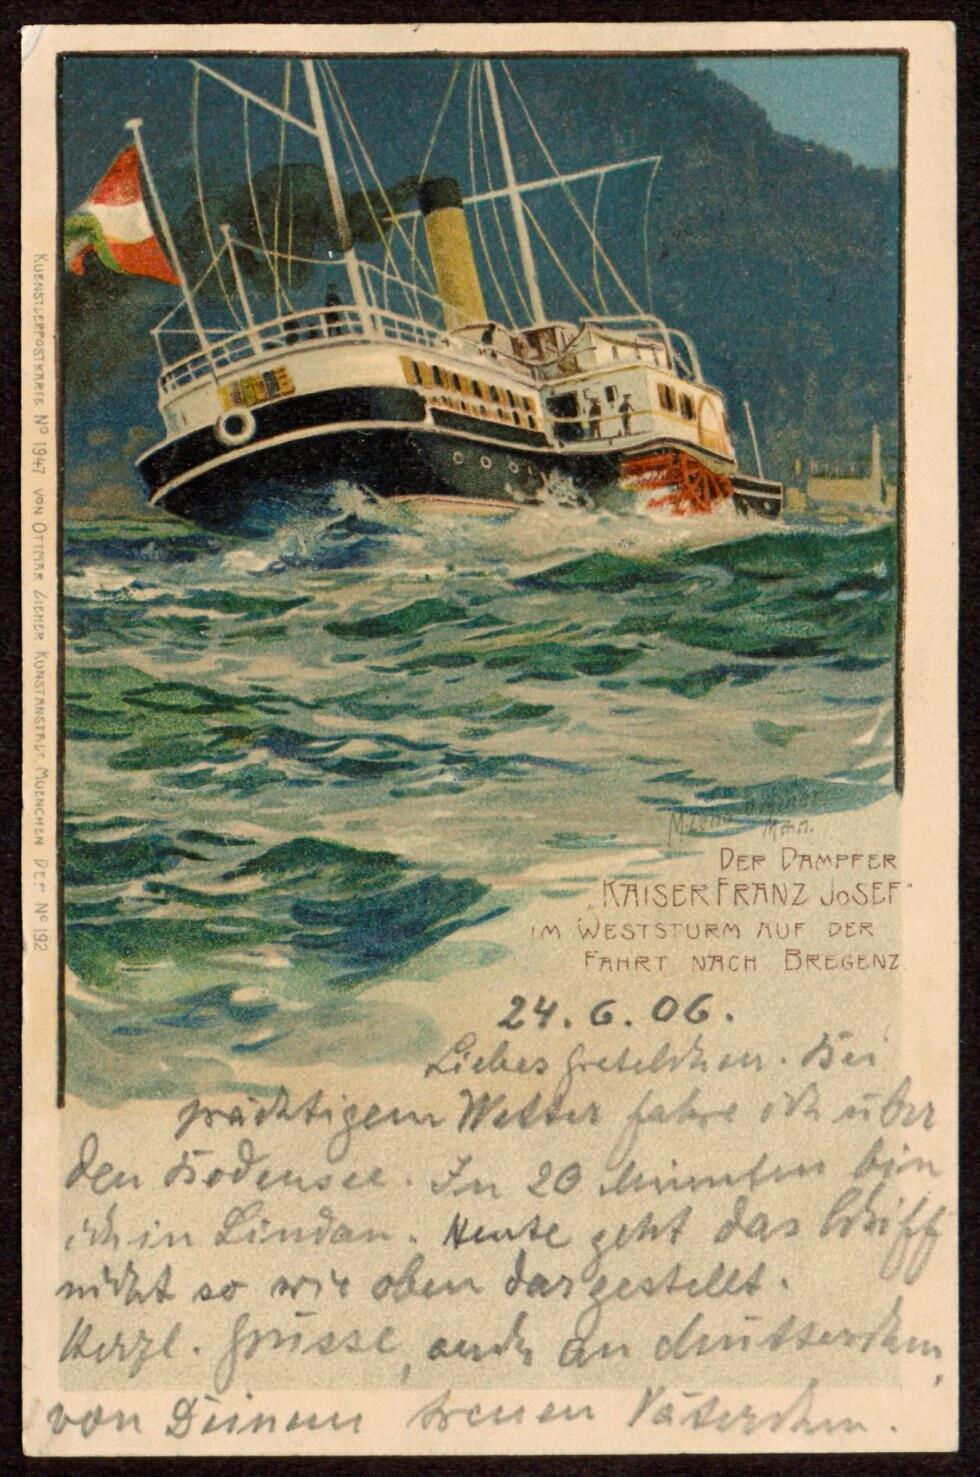 KUENSTLERPOSTKARTE No 1947 VON OTTMAR ZIEHER KUNSTANSTALT MUENCHEN DEP. No 192
DER DAMPFER
"KAISER FRANZ JOSEF"
IM WESTSTURM AUF DER
FAHRT NACH BREGENZ.
24. 6. 06.
Liebes Gretelchen. Bei
prächtigem Wetter fahre ich über
den Bodensee. In 20 Minuten bin
ich in Lindau. Heute geht das Schiff
nicht so wie oben dargestellt.
Herzl. Grüsse, auch an Mütterchen,
von Deinem treuen Väterchen.